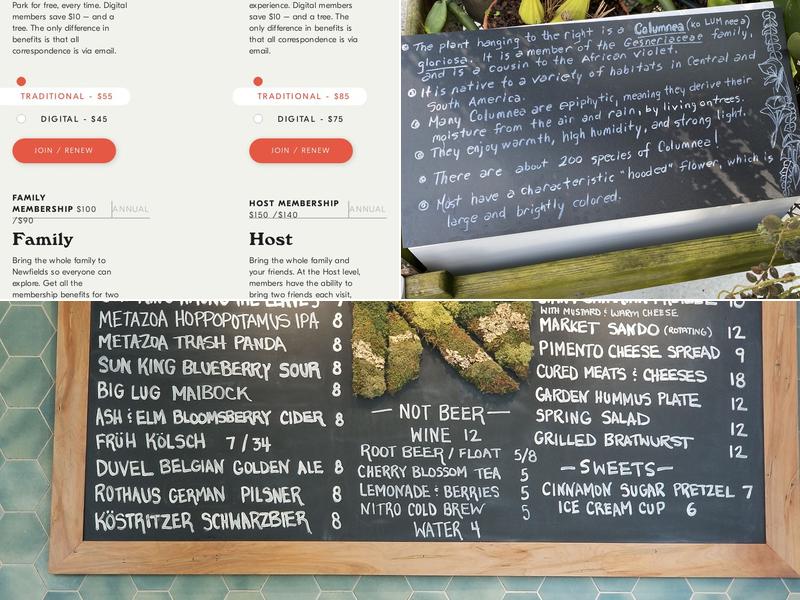 Park for free, every time. Digital
members save $10 — and a
tree. The only difference in
benefits is that all
correspondence is via email.
TRADITIONAL - $55
DIGITAL - $45
JOIN / RENEW
FAMILY
MEMBERSHIP $100
/$90
ANNUAL
Family
Bring the whole family to
Newfields so everyone can
explore. Get all the
membership benefits for two
experience. Digital members
save $10 — and a tree. The
only difference in benefits is
that all correspondence is via
email.
TRADITIONAL - $85
DIGITAL - $75
JOIN / RENEW
HOST MEMBERSHIP
$150 /$140
ANNUAL
Host
Bring the whole family and
your friends. At the Host level,
members have the ability to
bring two friends each visit,
The plant hanging to the right is a Columnea (ko LUM nee a)
gloriosa. It is a member of the Gesneriaceae family,
and is a cousin to the African violet.
It is native to a variety of habitats in Central and
South America.
Many Columnea are epiphytic, meaning they derive their
moisture from the air and rain, by living on trees.
They enjoy warmth, high humidity, and strong light.
There are about 200 species of Columnea!
Most have a characteristic "hooded" flower, which is
large and brightly colored.
METAZOA HOPPOPOTAMUS IPA 8
METAZOA TRASH PANDA 8
SUN KING BLUEBERRY SOUR 8
BIG LUG MAIBOCK 8
ASH & ELM BLOOMSBERRY CIDER 8
FRÜH KÖLSCH 7/34
DUVEL BELGIAN GOLDEN ALE 8
ROTHAUS GERMAN PILSNER 8
KÖSTRITZER SCHWARZBIER 8
— NOT BEER —
WINE 12
ROOT BEER / FLOAT 5/8
CHERRY BLOSSOM TEA 5
LEMONADE & BERRIES 5
NITRO COLD BREW 5
WATER 4
WITH MUSTARD & WARM CHEESE
MARKET SANDO (ROTATING) 12
PIMENTO CHEESE SPREAD 9
CURED MEATS & CHEESES 18
GARDEN HUMMUS PLATE 12
SPRING SALAD 12
GRILLED BRATWURST 12
— SWEETS —
CINNAMON SUGAR PRETZEL 7
ICE CREAM CUP 6